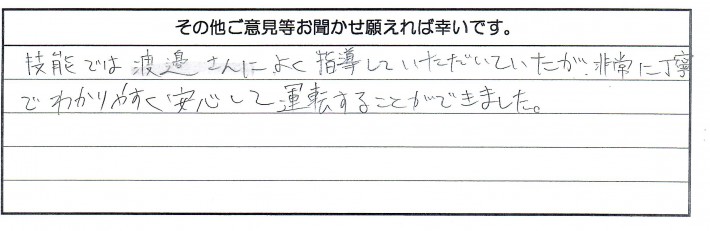 その他ご意見等お聞かせ願えれば幸いです。
技能では渡邉さんによく指導していただいていたが、非常に丁寧
でわかりやすく安心して運転することができました。